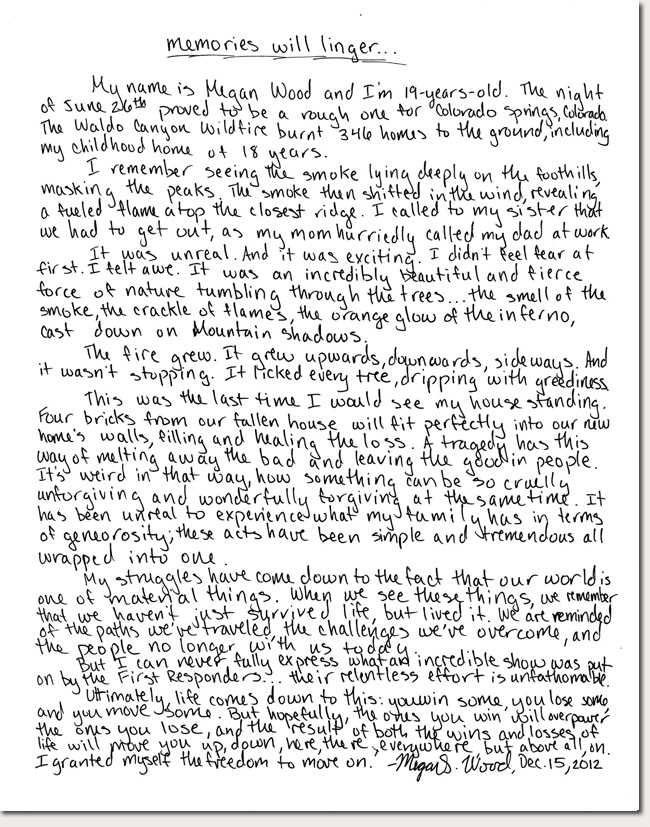 memories will linger...
My name is Megan Wood and I'm 19-years-old. The night
of June 26th proved to be a rough one for Colorado Springs, Colorado.
The Waldo Canyon Wildfire burnt 346 homes to the ground, including
my childhood home of 18 years.
I remember seeing the smoke lying deeply on the foothills,
masking the peaks. The smoke then shifted in the wind, revealing
a fueled flame atop the closest ridge. I called to my sister that
we had to get out, as my mom hurriedly called my dad at work
It was unreal. And it was exciting. I didn't feel fear at
first. I felt awe. It was an incredibly beautiful and fierce
force of nature tumbling through the trees... the smell of the
smoke, the crackle of flames, the orange glow of the inferno,
cast down on Mountain Shadows.
The fire grew. It grew upwards, downwards, sideways. And
it wasn't stopping. It licked every tree, dripping with greediness.
This was the last time I would see my house standing.
Four bricks from our fallen house will fit perfectly into our new
home's walls, filling and healing the loss. A tragedy has this
way of melting away the bad and leaving the good in people.
It's weird in that way, how something can be so cruelly
unforgiving and wonderfully forgiving at the same time. It
has been unreal to experience what my family has in terms
of geneorosity; these acts have been simple and tremendous all
wrapped into one.
My struggles have come down to the fact that our world is
one of material things. When we see these things, we remember
that we haven't just survived life, but lived it. We are reminded
of the paths we've traveled, the challenges we've overcome, and
the people no longer with us today.
But I can never fully express what an incredible show was put
on by the First Responders... their relentless effort is unfathomable.
Ultimately life comes down to this: you win some, you lose some
and you move some. But hopefully, the ones you win will overpower
the ones you lose, and the result of both the wins and losses of
life will move you up, down, here, there, everywhere, but above all, on.
I granted myself the freedom to move on. -Megan S. Wood, Dec. 15, 2012